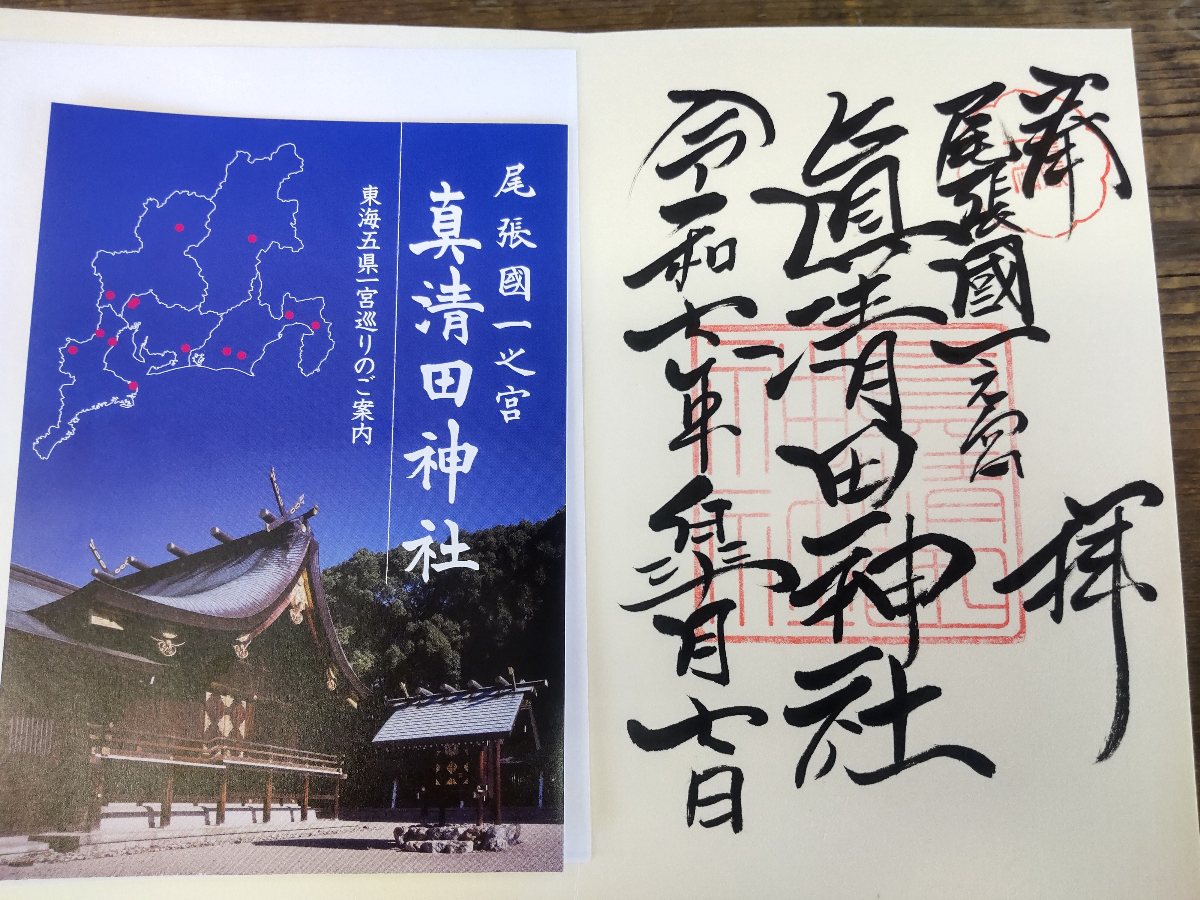 尾張國一之宮
真清田神社
東海五県一宮巡りのご案内
奉拝
尾張國一之宮
真清田神社
令和 年 月七日